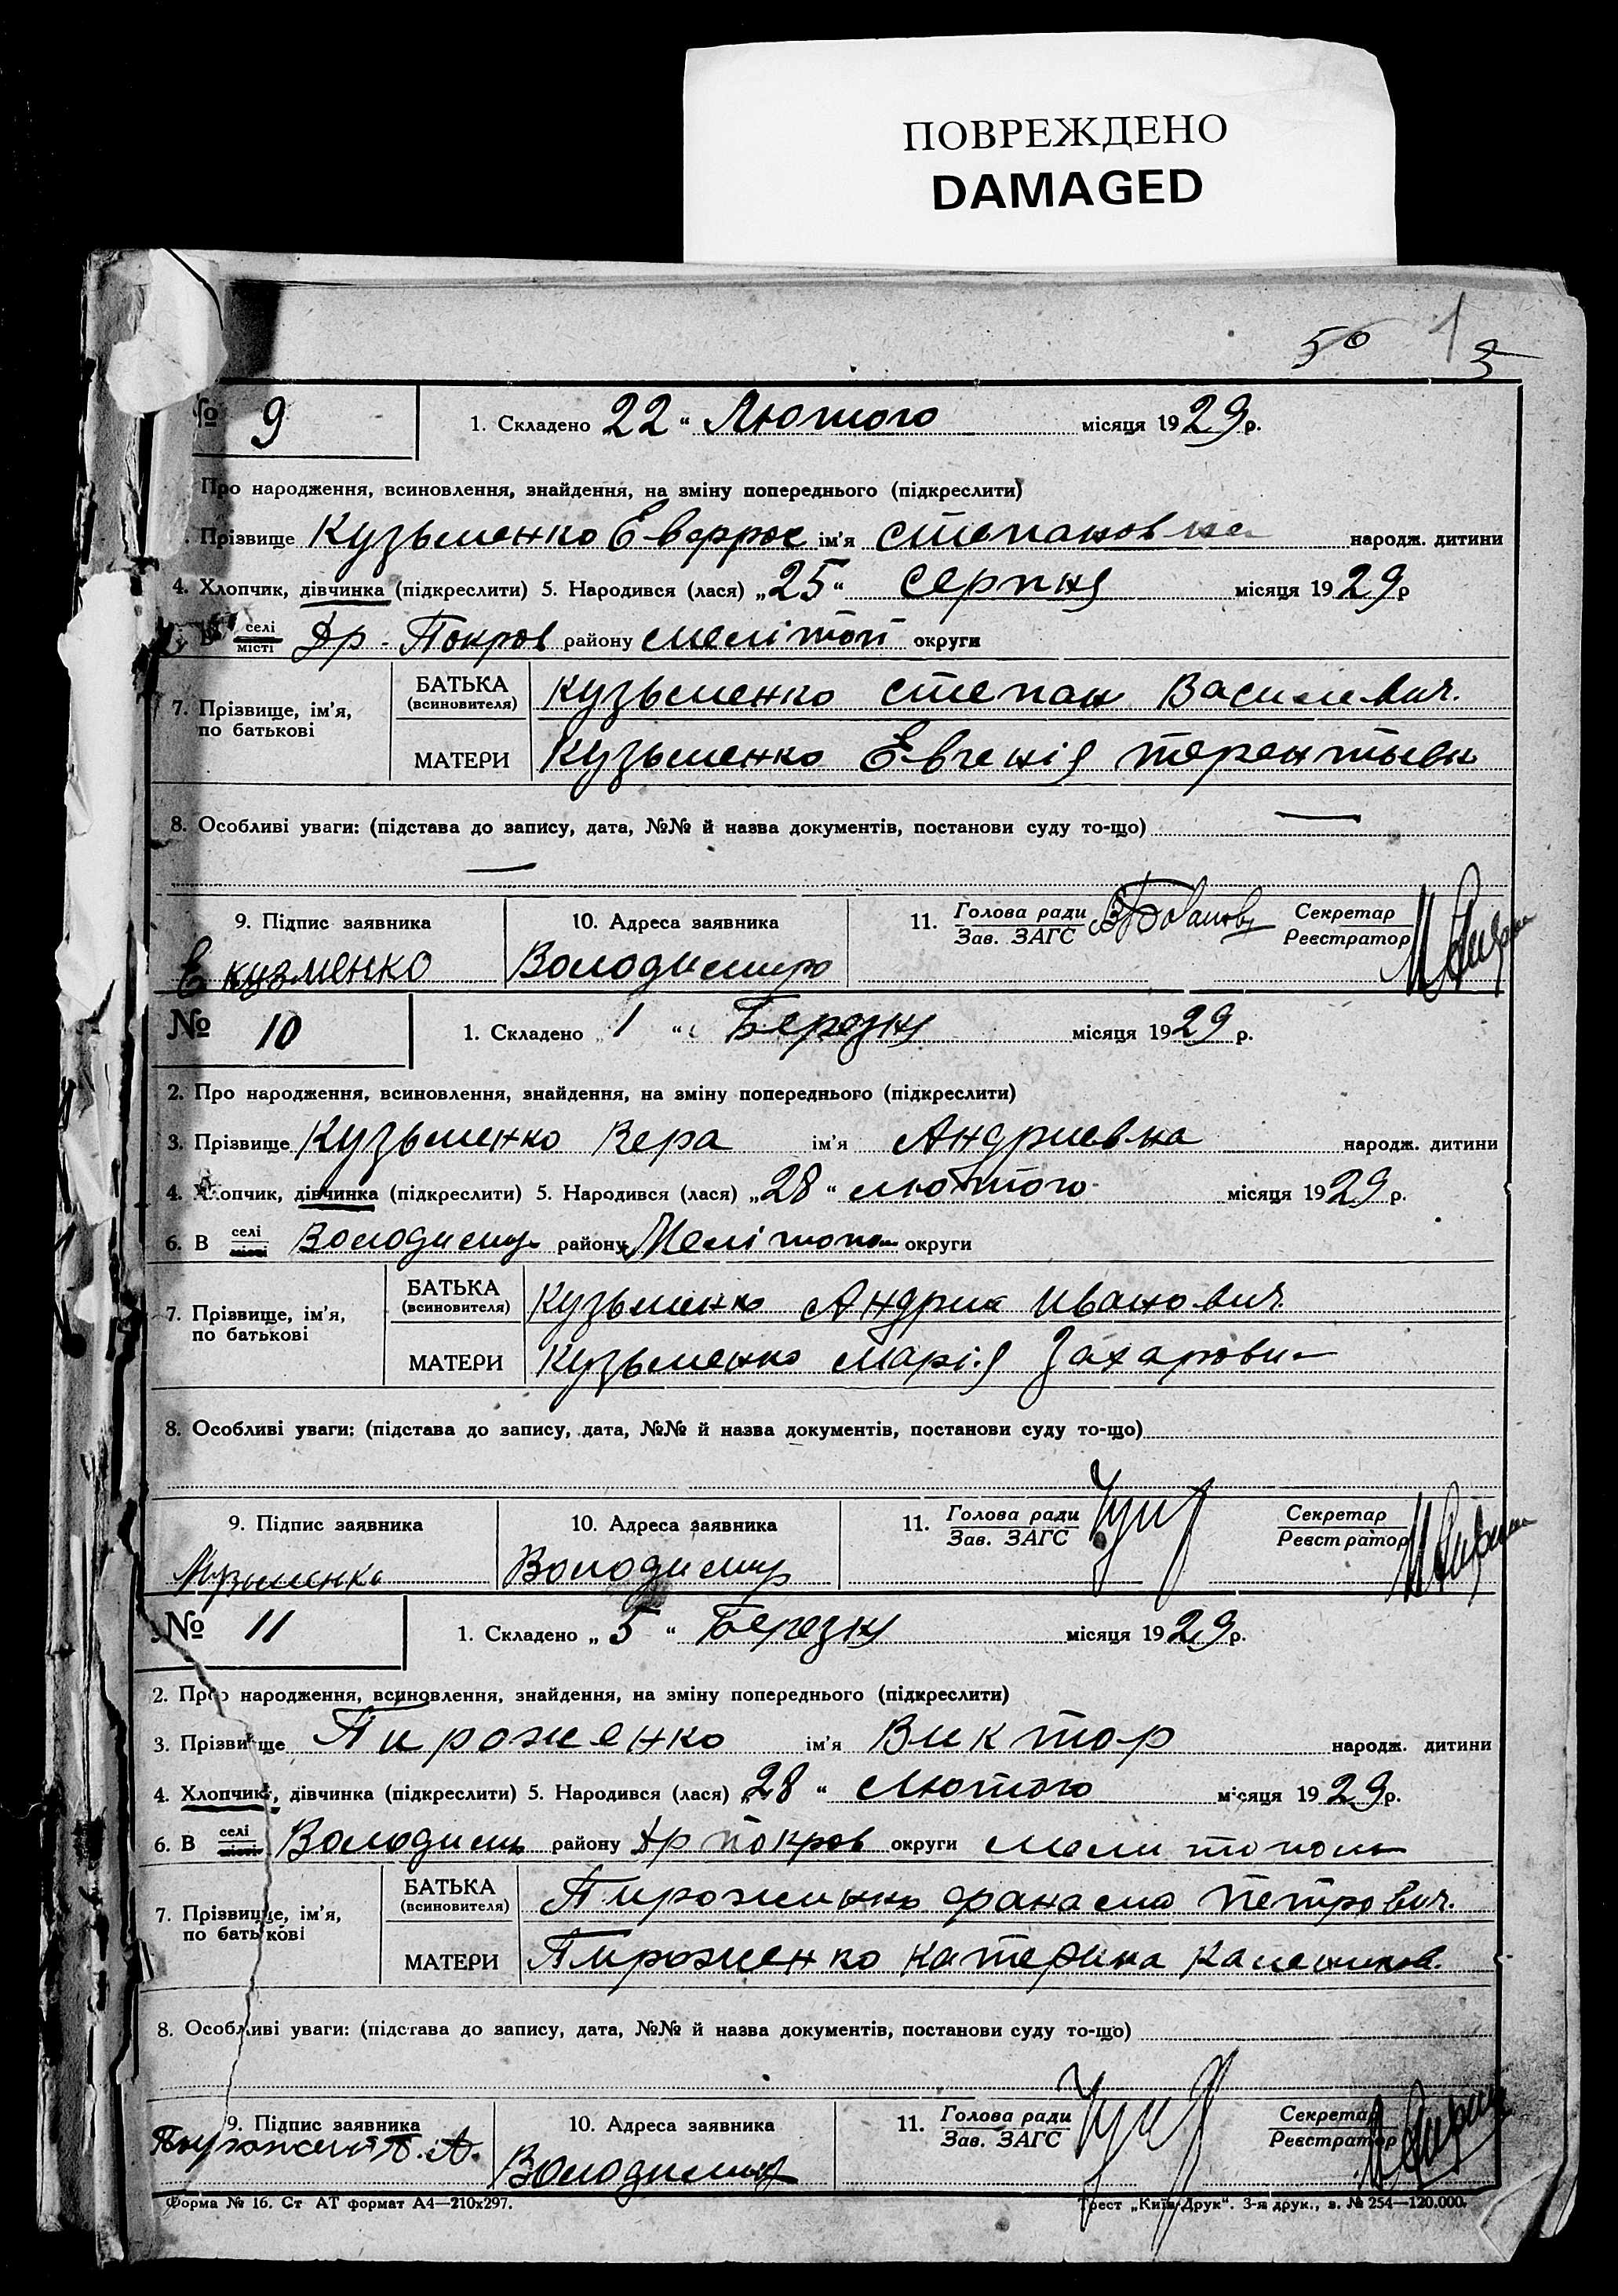 ПОВРЕЖДЕНО
DAMAGED
50 1 3
№ 9
1. Складено 22 “ Лютого місяця 1929р.
Про народження, всиновлення, знайдення, на зміну попереднього (підкреслити)
. Прізвище Кузьменко ім’я степановна народж. дитини
4. Хлопчик, дівчинка (підкреслити) 5. Народився (лася) „25“ серпня місяця 1929р
В селі
місті Др. Покров району мелітоп округи
7. Прізвище, ім’я,
по батькові
БАТЬКА
(всиновителя)
Кузьменко степан Василевич.
МАТЕРИ
Кузьменко Евгенія терентьевн
8. Особливі уваги: (підстава до запису, дата, №№ й назва документів, постанови суду то-що) —
—
9. Підпис заявника
10. Адреса заявника
11. Голова ради
Зав. ЗАГС
Секретар
Реєстратор
Е кузменко
Володимиро
№ 10
1. Складено „ 1 “ Березня місяця 1929 р.
2. Про народження, всиновлення, знайдення, на зміну попереднього (підкреслити)
3. Прізвище Кузьменко Вера ім’я Андриевна народж. дитини
4. Хлопчик, дівчинка (підкреслити) 5. Народився (лася) „28 “ лютого місяця 1929 р.
6. В селі
місті Володимир району Мелітопол округи
7. Прізвище, ім’я,
по батькові
БАТЬКА
(всиновителя)
Кузьменко Андрии Иванович.
МАТЕРИ
Кузьменко марія Захаровн
8. Особливі уваги: (підстава до запису, дата, №№ й назва документів, постанови суду то-що)
9. Підпис заявника
10. Адреса заявника
11. Голова ради
Зав. ЗАГС
Секретар
Реєстратор
Володимир
№ 11
1. Складено „ 5 “ Березня місяця 1929р.
2. Про народження, всиновлення, знайдення, на зміну попереднього (підкреслити)
3. Прізвище Пироженко ім’я Виктор народж. дитини
4. Хлопчик, дівчинка (підкреслити) 5. Народився (лася) „28 “ Лютого місяця 1929р.
6. В селі
місті Володимир району Др покров округи мелитополь
7. Прізвище, ім’я,
по батькові
БАТЬКА
(всиновителя)
Пироженко фанасий Петрович.
МАТЕРИ
Пироженко Катерина
8. Особливі уваги: (підстава до запису, дата, №№ й назва документів, постанови суду то-що)
9. Підпис заявника
10. Адреса заявника
11. Голова ради
Зав. ЗАГС
Секретар
Реєстратор
Володимир
Форма № 16. Ст АТ формат А4—210х297.
Трест „Київ-Друк“. 3-я друк., з. № 254—120.000.